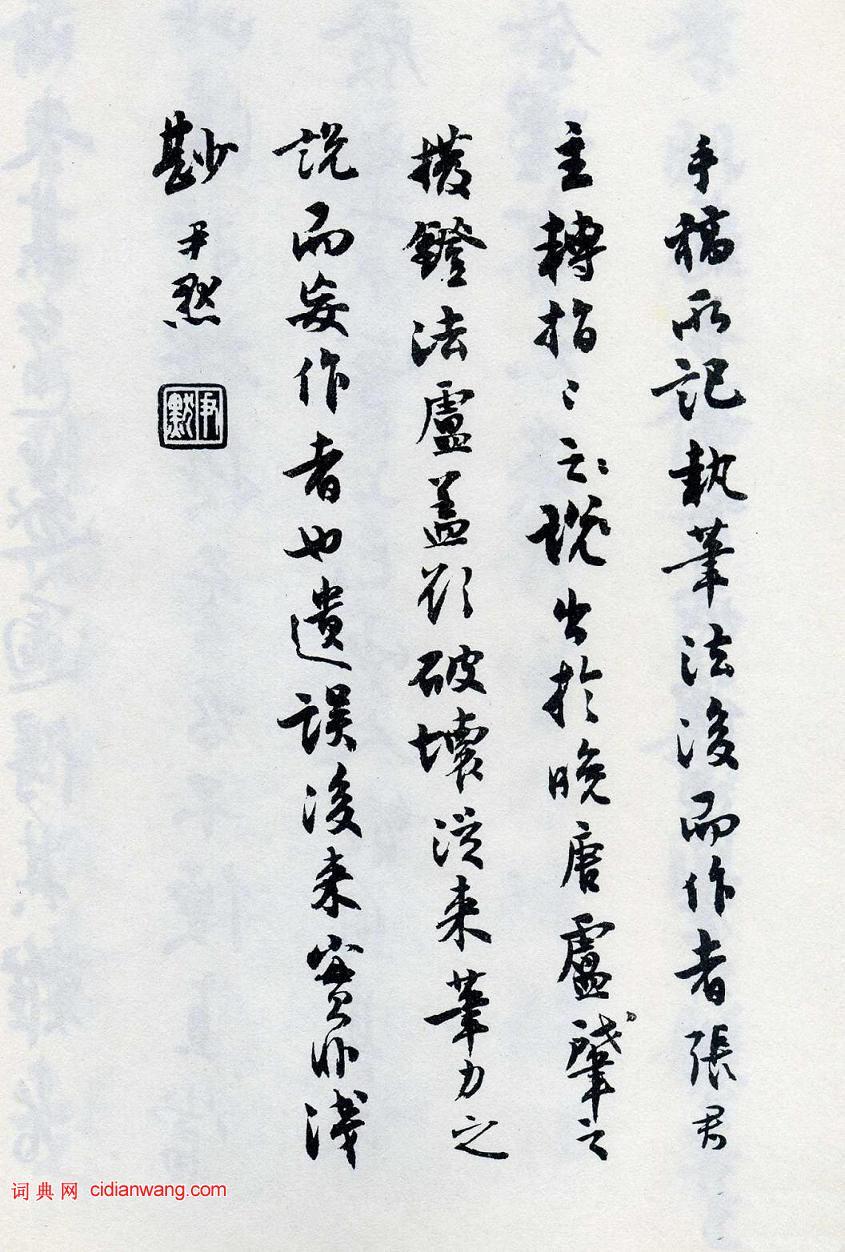 手稿所記執筆法後而作者張君
主轉指〻之〻說出於晚唐盧肇之
撥鐙法盧蓋欲破壞從來筆力之
說而妄作者也遺誤後來實非淺
尠尹默
尹默
词典网 cidianwang.com